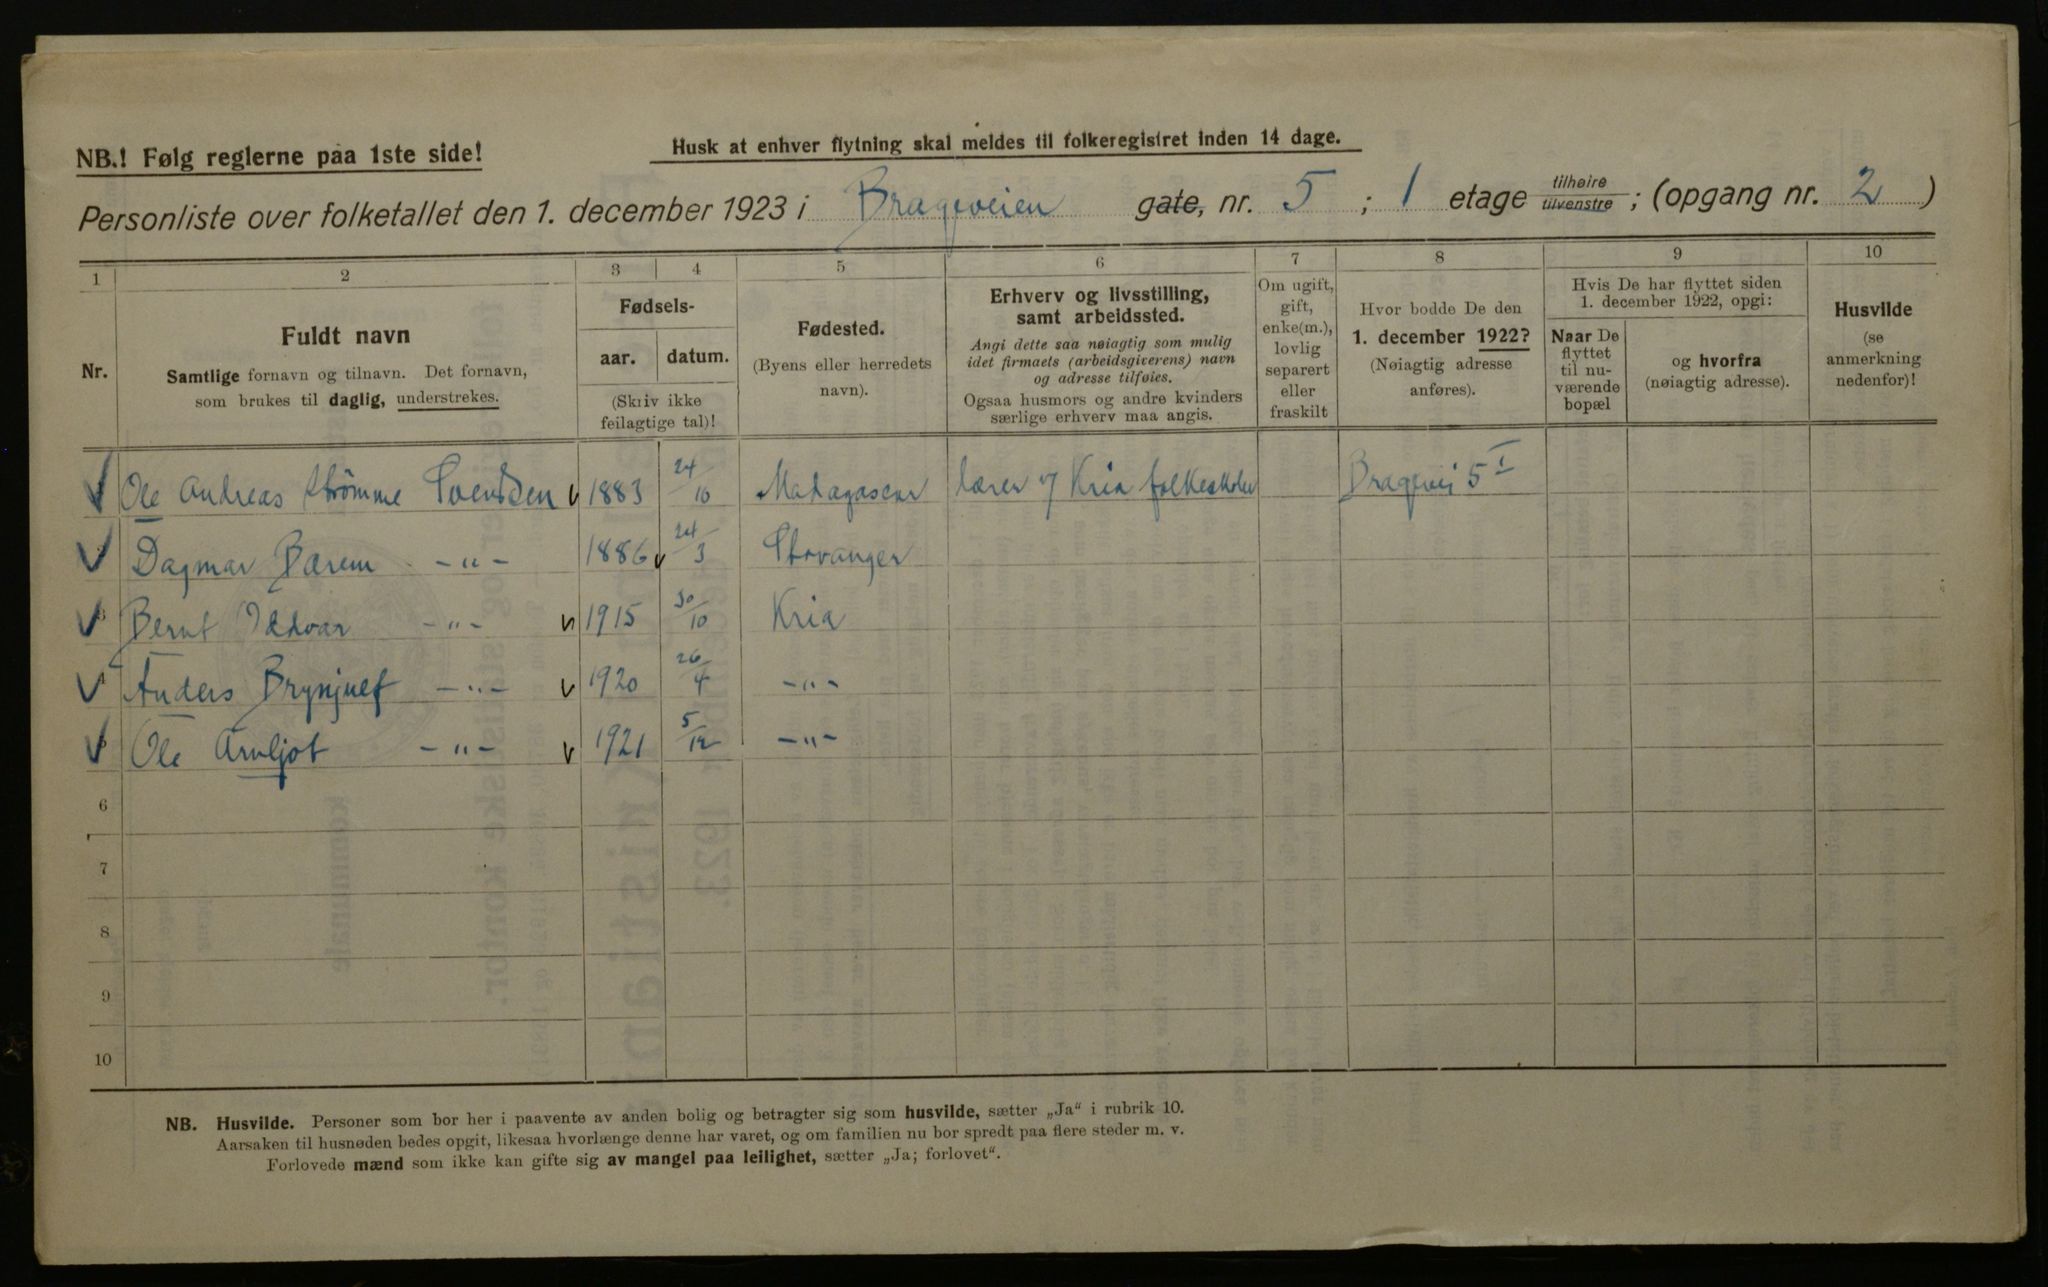 NB.! Følg reglerne paa 1ste side!
Husk at enhver flytning skal meldes til folkeregistret inden 14 dage.
Personliste over folketallet den 1. december 1923 i Brageveien gate, nr. 5 ; 1 etage tilhøire tilvenstre ; (opgang nr. 2 )
1 2 3 4 5 6 7 8 9 10
Nr.
Fuldt navn
Samtlige fornavn og tilnavn. Det fornavn,
som brukes til daglig, understrekes.
Fødsels-
aar. datum.
(Skriv ikke
feilagtige tal)!
Fødested.
(Byens eller herredets
navn).
Erhverv og livsstilling,
samt arbeidssted.
Angi dette saa nøiagtig som mulig
idet firmaets (arbeidsgiverens) navn
og adresse tilføies.
Ogsaa husmors og andre kvinders
særlige erhverv maa angis.
Om ugift,
gift,
enke(m.),
lovlig
separert
eller
fraskilt
Hvor bodde De den
1. december 1922?
(Nøiagtig adresse
anføres).
Hvis De har flyttet siden
1. december 1922, opgi:
Naar De
flyttet
til nu-
værende
bopæl
og hvorfra
(nøiagtig adresse).
Husvilde
(se
anmerkning
nedenfor)!
Ole Andreas Strømme Svendsen 1883 24/10 Madagascar lærer v/ Kria folkeskoler Bragevei 5 I
Dagmar Bærem -"- 1886 24/3 Stavanger
Bernt Iddvar -"- 1915 30/10 Kria
4 Anders Brynjulf -"- 1920 26/4 -"-
5 Ole Arnljot -"- 1921 5/12 -"-
6
7
8
9
10
NB. Husvilde. Personer som bor her i paavente av anden bolig og betragter sig som husvilde, sætter „Ja“ i rubrik 10.
Aarsaken til husnøden bedes opgit, likesaa hvorlænge denne har varet, og om familien nu bor spredt paa flere steder m. v.
Forlovede mænd som ikke kan gifte sig av mangel paa leilighet, sætter „Ja; forlovet“.